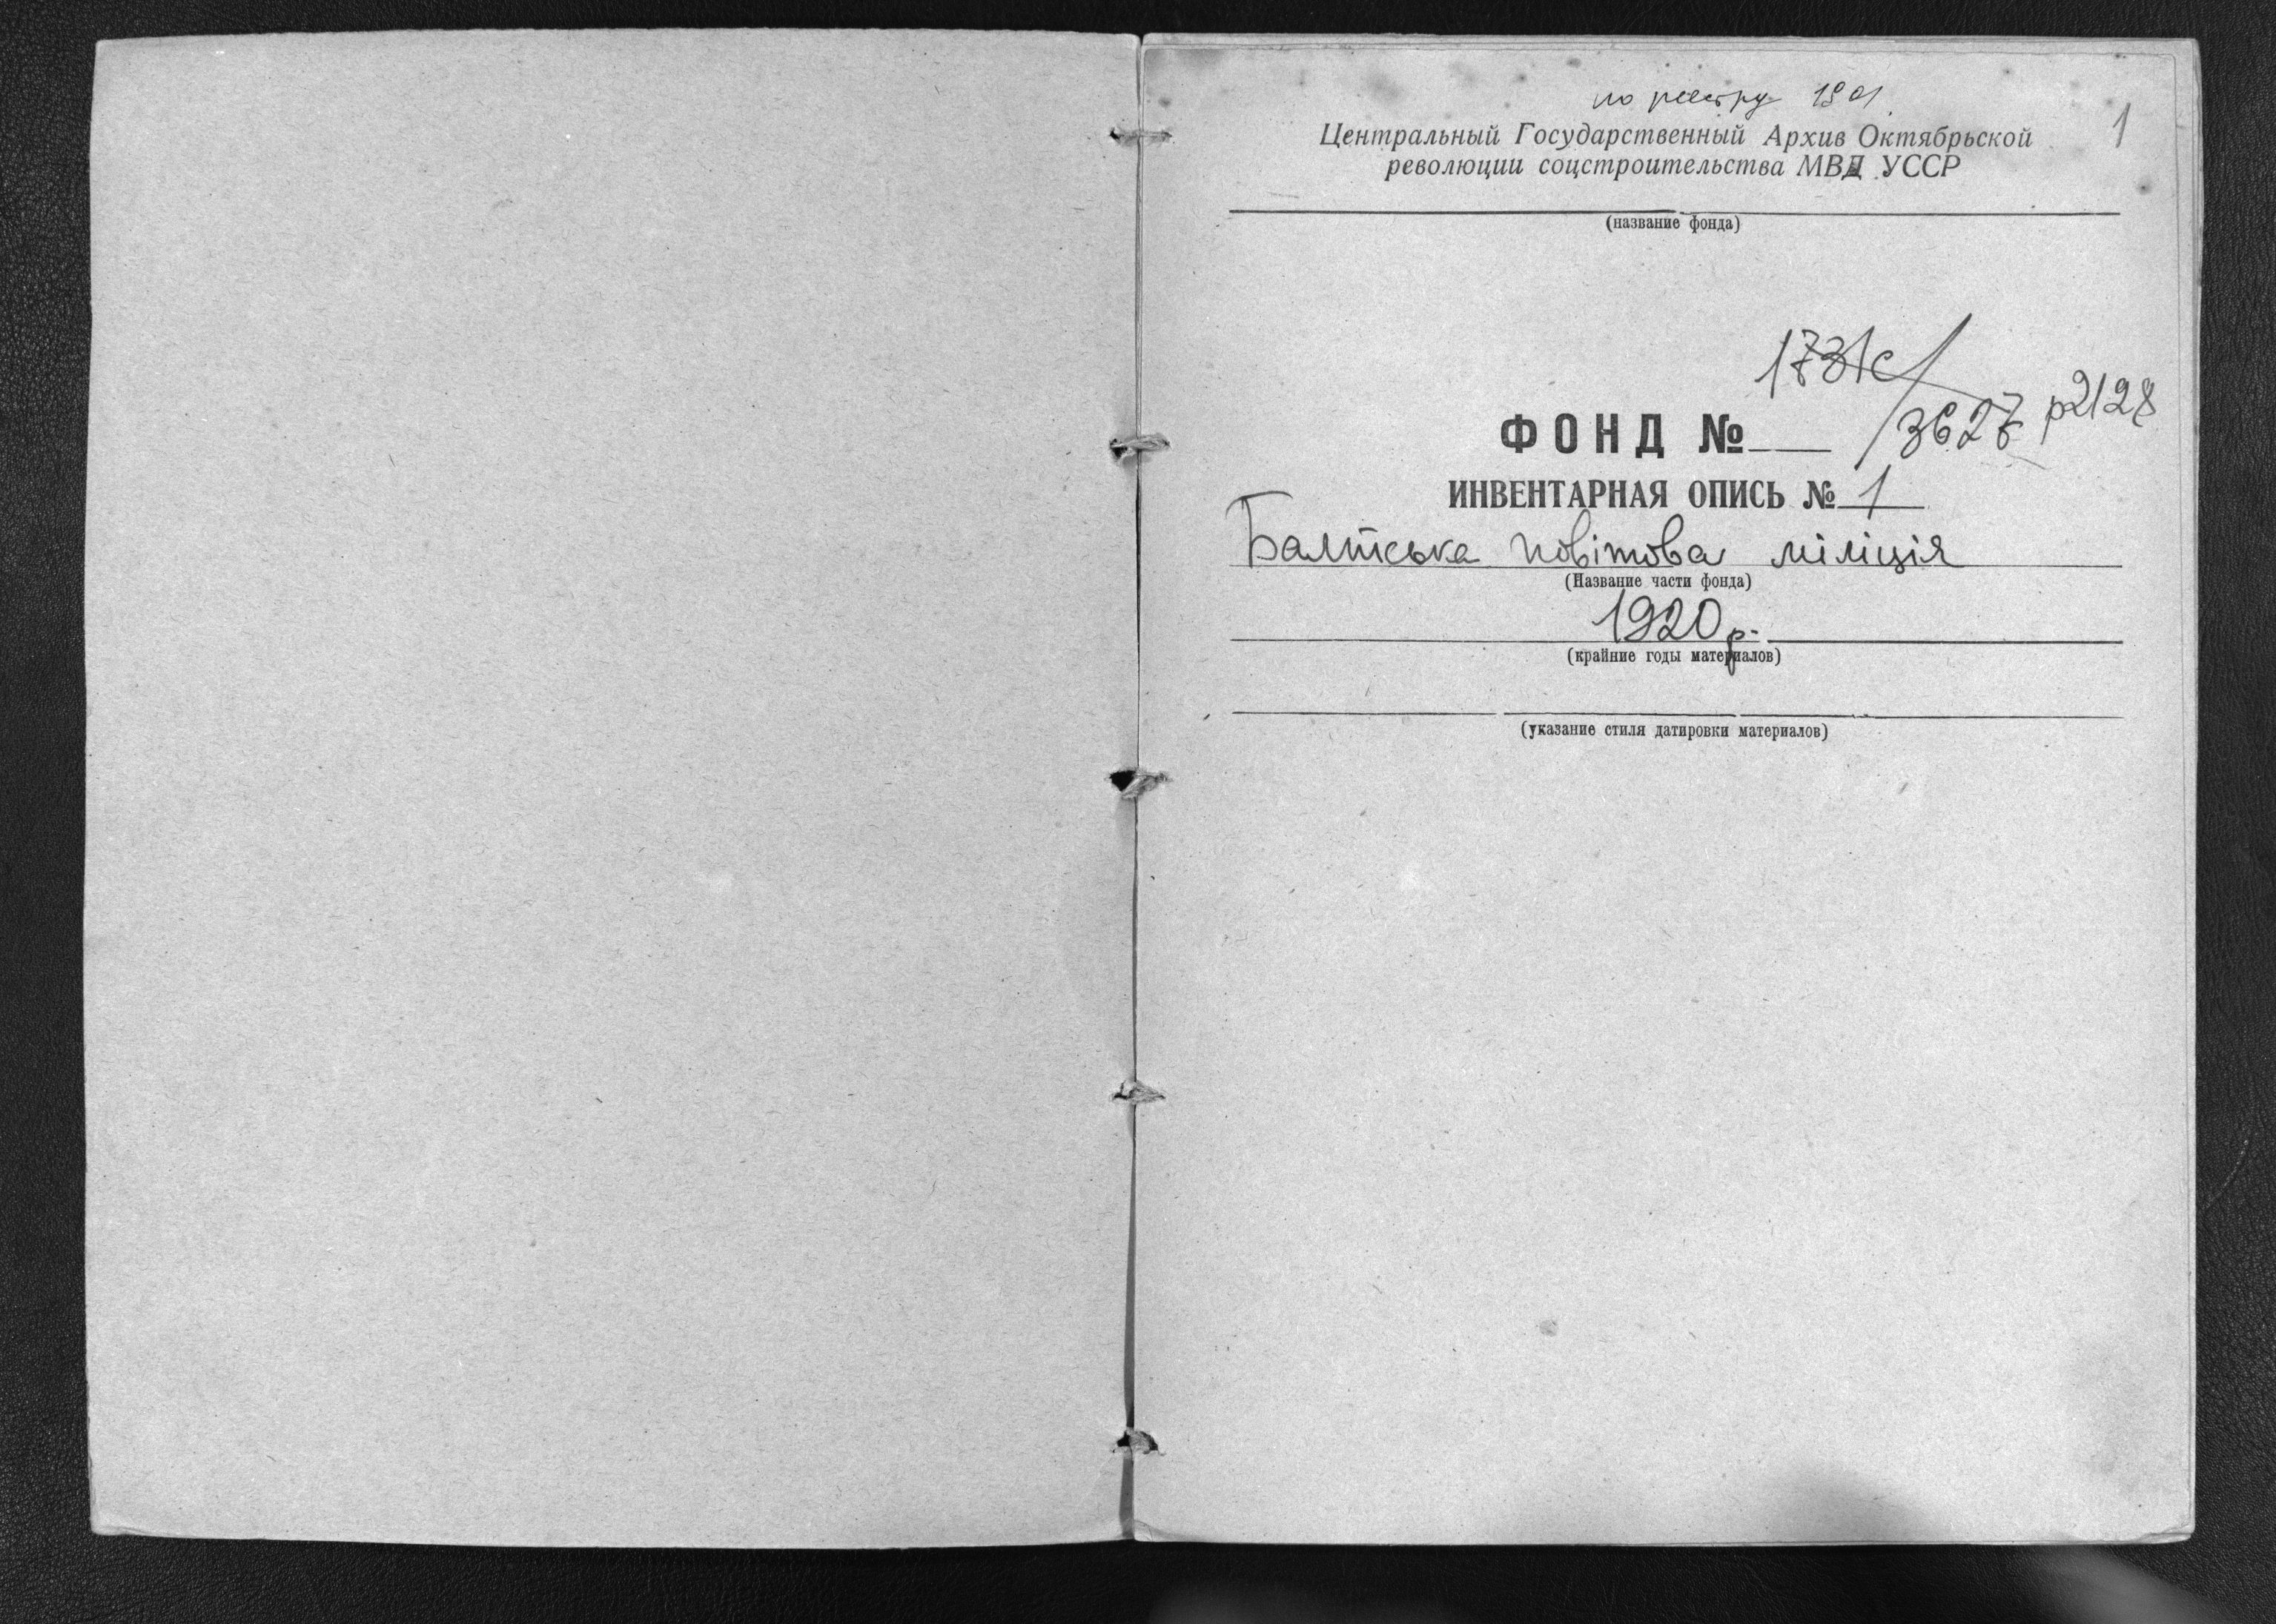 по реестру 1901
1
Центральный Государственный Архив Октябрьской
революции соцстроительства МВД УССР
(название фонда)
1731с/
3627 р2128
ФОНД №
ИНВЕНТАРНАЯ ОПИСЬ № 1
Балтська повітова міліція
(Название части фонда)
1920 р.
(крайние годы материалов)
(указание стиля датировки материалов)